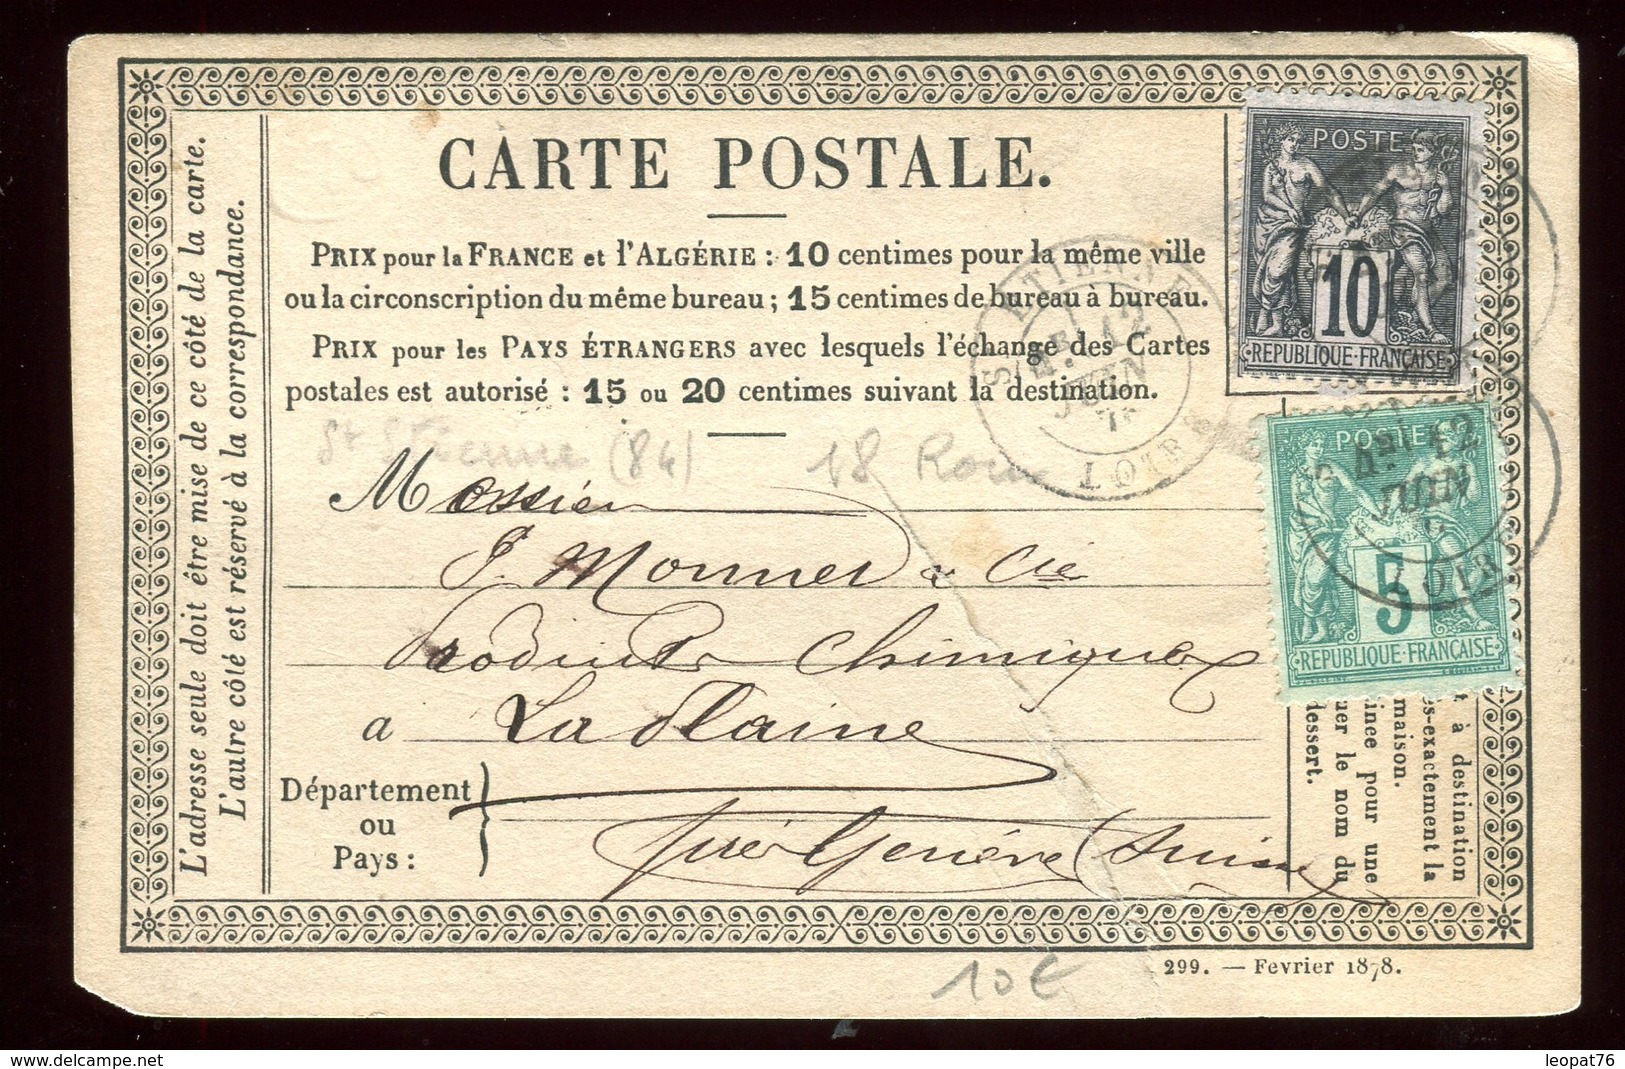 CARTE POSTALE.
PRIX pour la FRANCE et l'ALGÉRIE : 10 centimes pour la même ville
ou la circonscription du même bureau ; 15 centimes de bureau à bureau.
PRIX pour les PAYS ÉTRANGERS avec lesquels l'échange des Cartes
postales est autorisé : 15 ou 20 centimes suivant la destination.
L'adresse seule doit être mise de ce côté de la carte.
L'autre côté est réservé à la correspondance.
POSTE
10
REPUBLIQUE·FRANÇAISE
ETIENNE
JUIN
LOIRE
POSTE
12
JUIN
LOIRE
5
REPUBLIQUE·FRANÇAISE
St Etienne (84) 18
Messieu
Monnet & Cie
Produits Chimiques
a La Plaine
Département
ou
Pays :
près Genève (Suisse
t à destination
ès-exactement la
maison.
inée pour une
uer le nom du
dessert.
299. — Fevrier 1878.
10€
leopat76